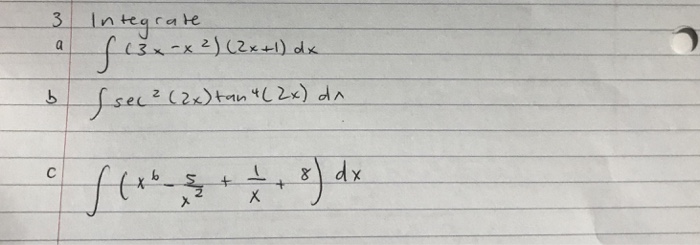 3 Integrate
a ∫ (3x - x²)(2x+1) dx
b ∫ sec²(2x) tan⁴(2x) dx
c ∫ (x⁶ - 5/x² + 1/x + 8) dx